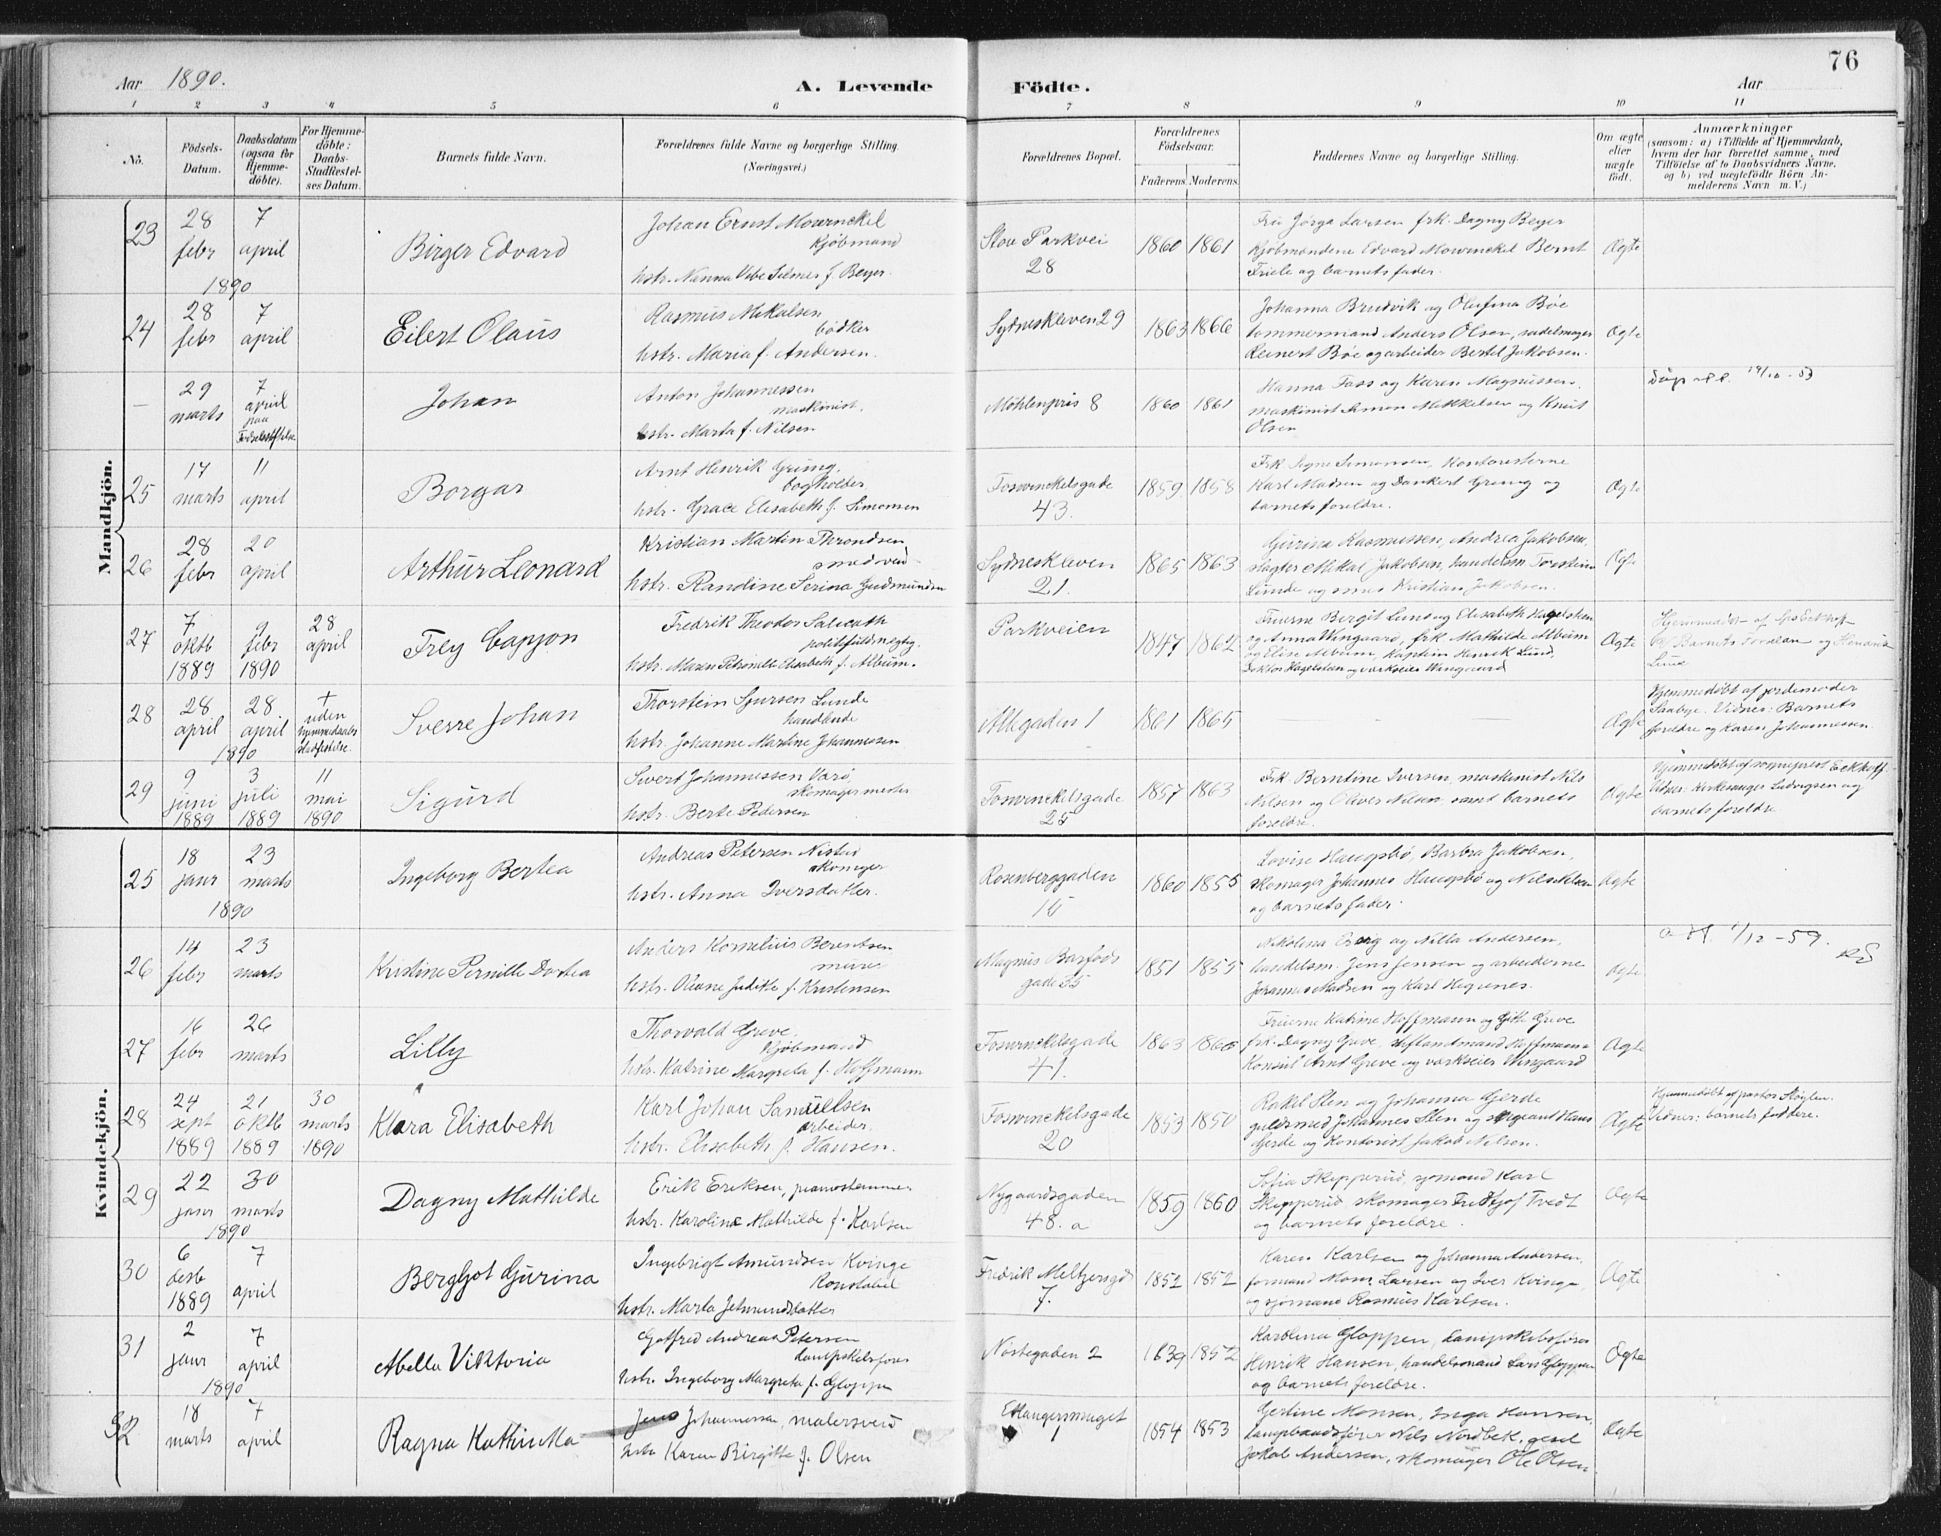 76
Aar 1890.
A. Levende Födte.
Aar
1 2 3 4 5 6 7 8 9 10 11
No.
Födsels-Datum.
Daabsdatum (ogsaa for Hjemmedöbte).
For Hjemmedöbte: Daabs-Stadfæstelses Datum.
Barnets fulde Navn.
Forældrenes fulde Navne og borgerlige Stilling. (Næringsvei.)
Forældrenes Bopæl.
Forældrenes Födselsaar.
Faderens. Moderens.
Faddernes Navne og borgerlige Stilling.
Om ægte eller uægte födt.
Anmærkninger
(saasom: a) i Tilfælde af Hjemmedaab, hvem der har forrettet samme, med Tilföielse af to Daabsvidners Navne, og b) ved uægtefödte Börn Anmelderens Navn m. V.)
Mandkjön.
23 28 febr 7 april 1890
Birger Edvard
Johan Ernst Mowinckel
kjöbmand
hstr. Nanna Vibe Selmer f. Beyer.
Parkvei 28
1860 1861
Fru Jörga Larsen frk. Dagny Beyer
Kjöbmændene Edvard Mowinckel Bernt
Friele og barnets fader.
Ægte
24 28 febr 7 april
Eilert Olaus
Rasmus Mikalsen
bödker
hstr. Maria f. Andersen.
Sydneskleven 29
1863 1866
Johanna Brudvik og Olufina Böe
tömmermand Anders Olsen, sadelmager
Reinert Böe og arbeider Bertel Jakobsen.
Ægte
– 29 marts 7 april paa Födselsstiftelse
Johan
Anton Johannessen
maskinist.
hstr. Marta f. Nilsen
Möhlenpris 8
1860 1861
Hanna Foss og Karen Magnussen,
maskinist Simon Mikkelsen og Knut
Olsen
25 17 marts 11 april
Borgar
Arnt Henrik Grung.
bogholder
hstr. Grace Elisabeth f. Simonsen
Fosvinckelsgade 43.
1859 1858
Frk. Signe Simonsen, Kontoristerne
Karl Madsen og Dankert Grung og
barnets forældre.
Ægte
26 28 febr 20 april
Arthur Leonard
Kristian Martin Throndsen
smedsvend
hstr. Randine Serina Gudmundsen
Sydneskleven 21.
1865 1863
Gurina Rasmussen, Andrea Jakobsen,
slagter Mikal Jakobsen, handelsm. Torstein
Lunde og Kristian Jakobsen.
Ægte
27 7 oktb 1889 9 febr 1890 28 april
Frey Capjon
Fredrik Theodor Salicath
politifuldmægtig.
hstr. Maren Petronille Elisabeth f. Album.
Parkveien
1847 1862
Fruerne Bergit Lund og Elisabeth Hagelsteen
og Anna Wingaard, frk. Mathilde Album
og Elise Album, Kaptein Henrik Lund,
Doktor Hagelsteen og værkseier Wingaard
Ægte
28 28 april 28 april 1890 + uden hjemmedaabs stadfæstelse.
Sverre Johan
Thorstein Sjursen Lunde
handlende
hstr. Johanne Martine Johannessen
Allegaden 1
1861 1865
– –
Ægte
Hjemmedöbt af jordemoder
Saabye. Vidner: Barnets
forældre og Karen Johannessen.
29 9 juni 1889 3 juli 1889 11 mai 1890
Sigurd
Sivert Johannessen Varö,
skomagermester
hstr. Berte Pedersen
Fosvinckelsgade 25
1857 1863
Frk. Berntine Iversen, maskinist Nils
Nilsen og Oliver Nilsen, samt barnets
forældre.
Ægte
Hjemmedöbt af sogneprest Eckhoff.
Vidner: Kirkesanger Ludvigsen og
barnets forældre.
Kvindekjön.
25 18 janr 23 marts 1890
Ingeborg Bertea
Andreas Petersen
skomager
hstr. Anna Iversdatter.
Rosenberggaden 15
1860 1855
Lovise Haugsbö, Barbra Jakobsen,
skomager Johannes Haugsbö og Nils
og barnets fader.
Ægte
26 14 febr 23 marts
Kristine Pernille Dortea
Anders Kornelius Berentsen
murer
hstr. Oliane Judithe f. Kristensen
Magnus Barfods gade 35
1851 1855
Nikolina og Nilla Andersen,
handelsm. Jens Jensen og arbeiderne
Johannes Madsen og Karl
Ægte
1/12 – 59.
27 16 febr 26 marts
Lilly
Thorvald Greve.
Kjöbmand
hstr. Katrine Margreta f. Hoffmann
Fosvinckelsgade 41.
1863 1866
Fruerne Katrine Hoffmann og Gith Greve
frk. Dagny Greve, Hoffmann
Konsul Arnt Greve og værkseier Wingaard
Ægte
28 24 sept 1889 21 oktb 1889 30 marts 1890
Klara Elisabeth
Karl Johan Samuelsen
arbeider.
hstr. Elisabeth f. Hansen.
Fosvinckelsgade 20
1853 1850
Rakel Sten og Johanna Gjerde
guldsmed Johannes Sten og sergeant Hans
Gjerde og Kontorist Jakob Nilsen.
Ægte
Hjemmedöbt af pastor
Vidner: barnets faddere.
29 22 janr 30 marts 1890
Dagny Mathilde
Erik Eriksen, pianostemmer
hstr. Karoline Mathilde f. Karlsen
Nygaardsgaden 48. a
1859 1860
Sofia Skepperud, sjömand Karl
Skepperud, skomager Fredthjof Tvedt
og barnets forældre.
Ægte
30 6 desb 1889 7 april
Bergljot Gurina
Ingebrigt Amundsen Kvinge
Konstabel
hstr. Marta
Fredrik Meltzersgd 7.
1852 1852
Karen Karlsen og Johanna Andersen,
formand Mons Larsen og Iver Kvinge,
og sjömand Rasmus Karlsen.
Ægte
31 2 janr 7 april 1890
Abella Viktoria
Gotfred Andreas Petersen
dampskibsförer
hstr. Ingeborg Margreta f. Gloppen
Nöstegaden 2
1839 1852
Karolina Gloppen, dampskibsförer
Henrik Hansen, handelsmand Lars Gloppen
og barnets forældre.
Ægte
32 18 marts 7 april
Ragna Kathinka
Jens Johannessen, malersvend
hstr. Karen Birgitte f. Olsen
Ellangersmuget 1
1854 1853
Gertine Monsen, Inga Hansen,
Nils Nordbek, gesel
Jokal Andersen, skomager Ole Olsen.
Ægte